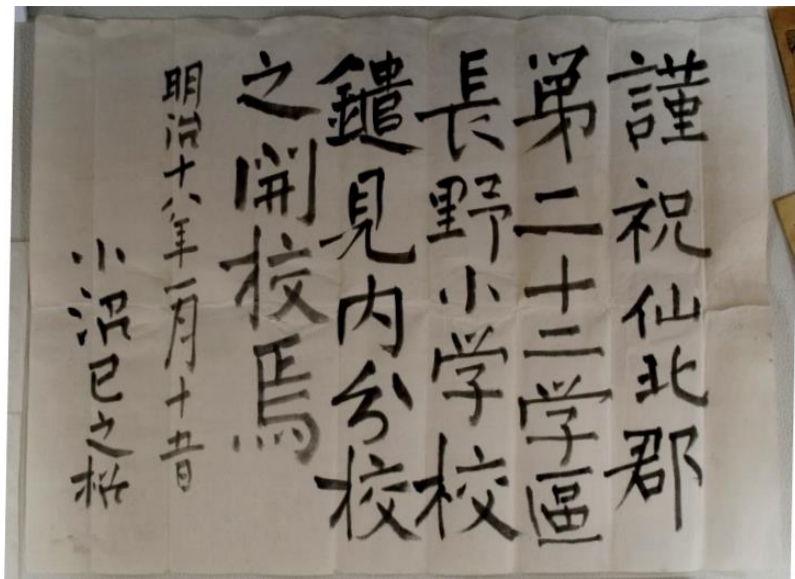 謹祝仙北郡
第二十二学區
長野小学校
鑓見内分校
之開校焉
明治十八年一月十五日
小沼巳之松